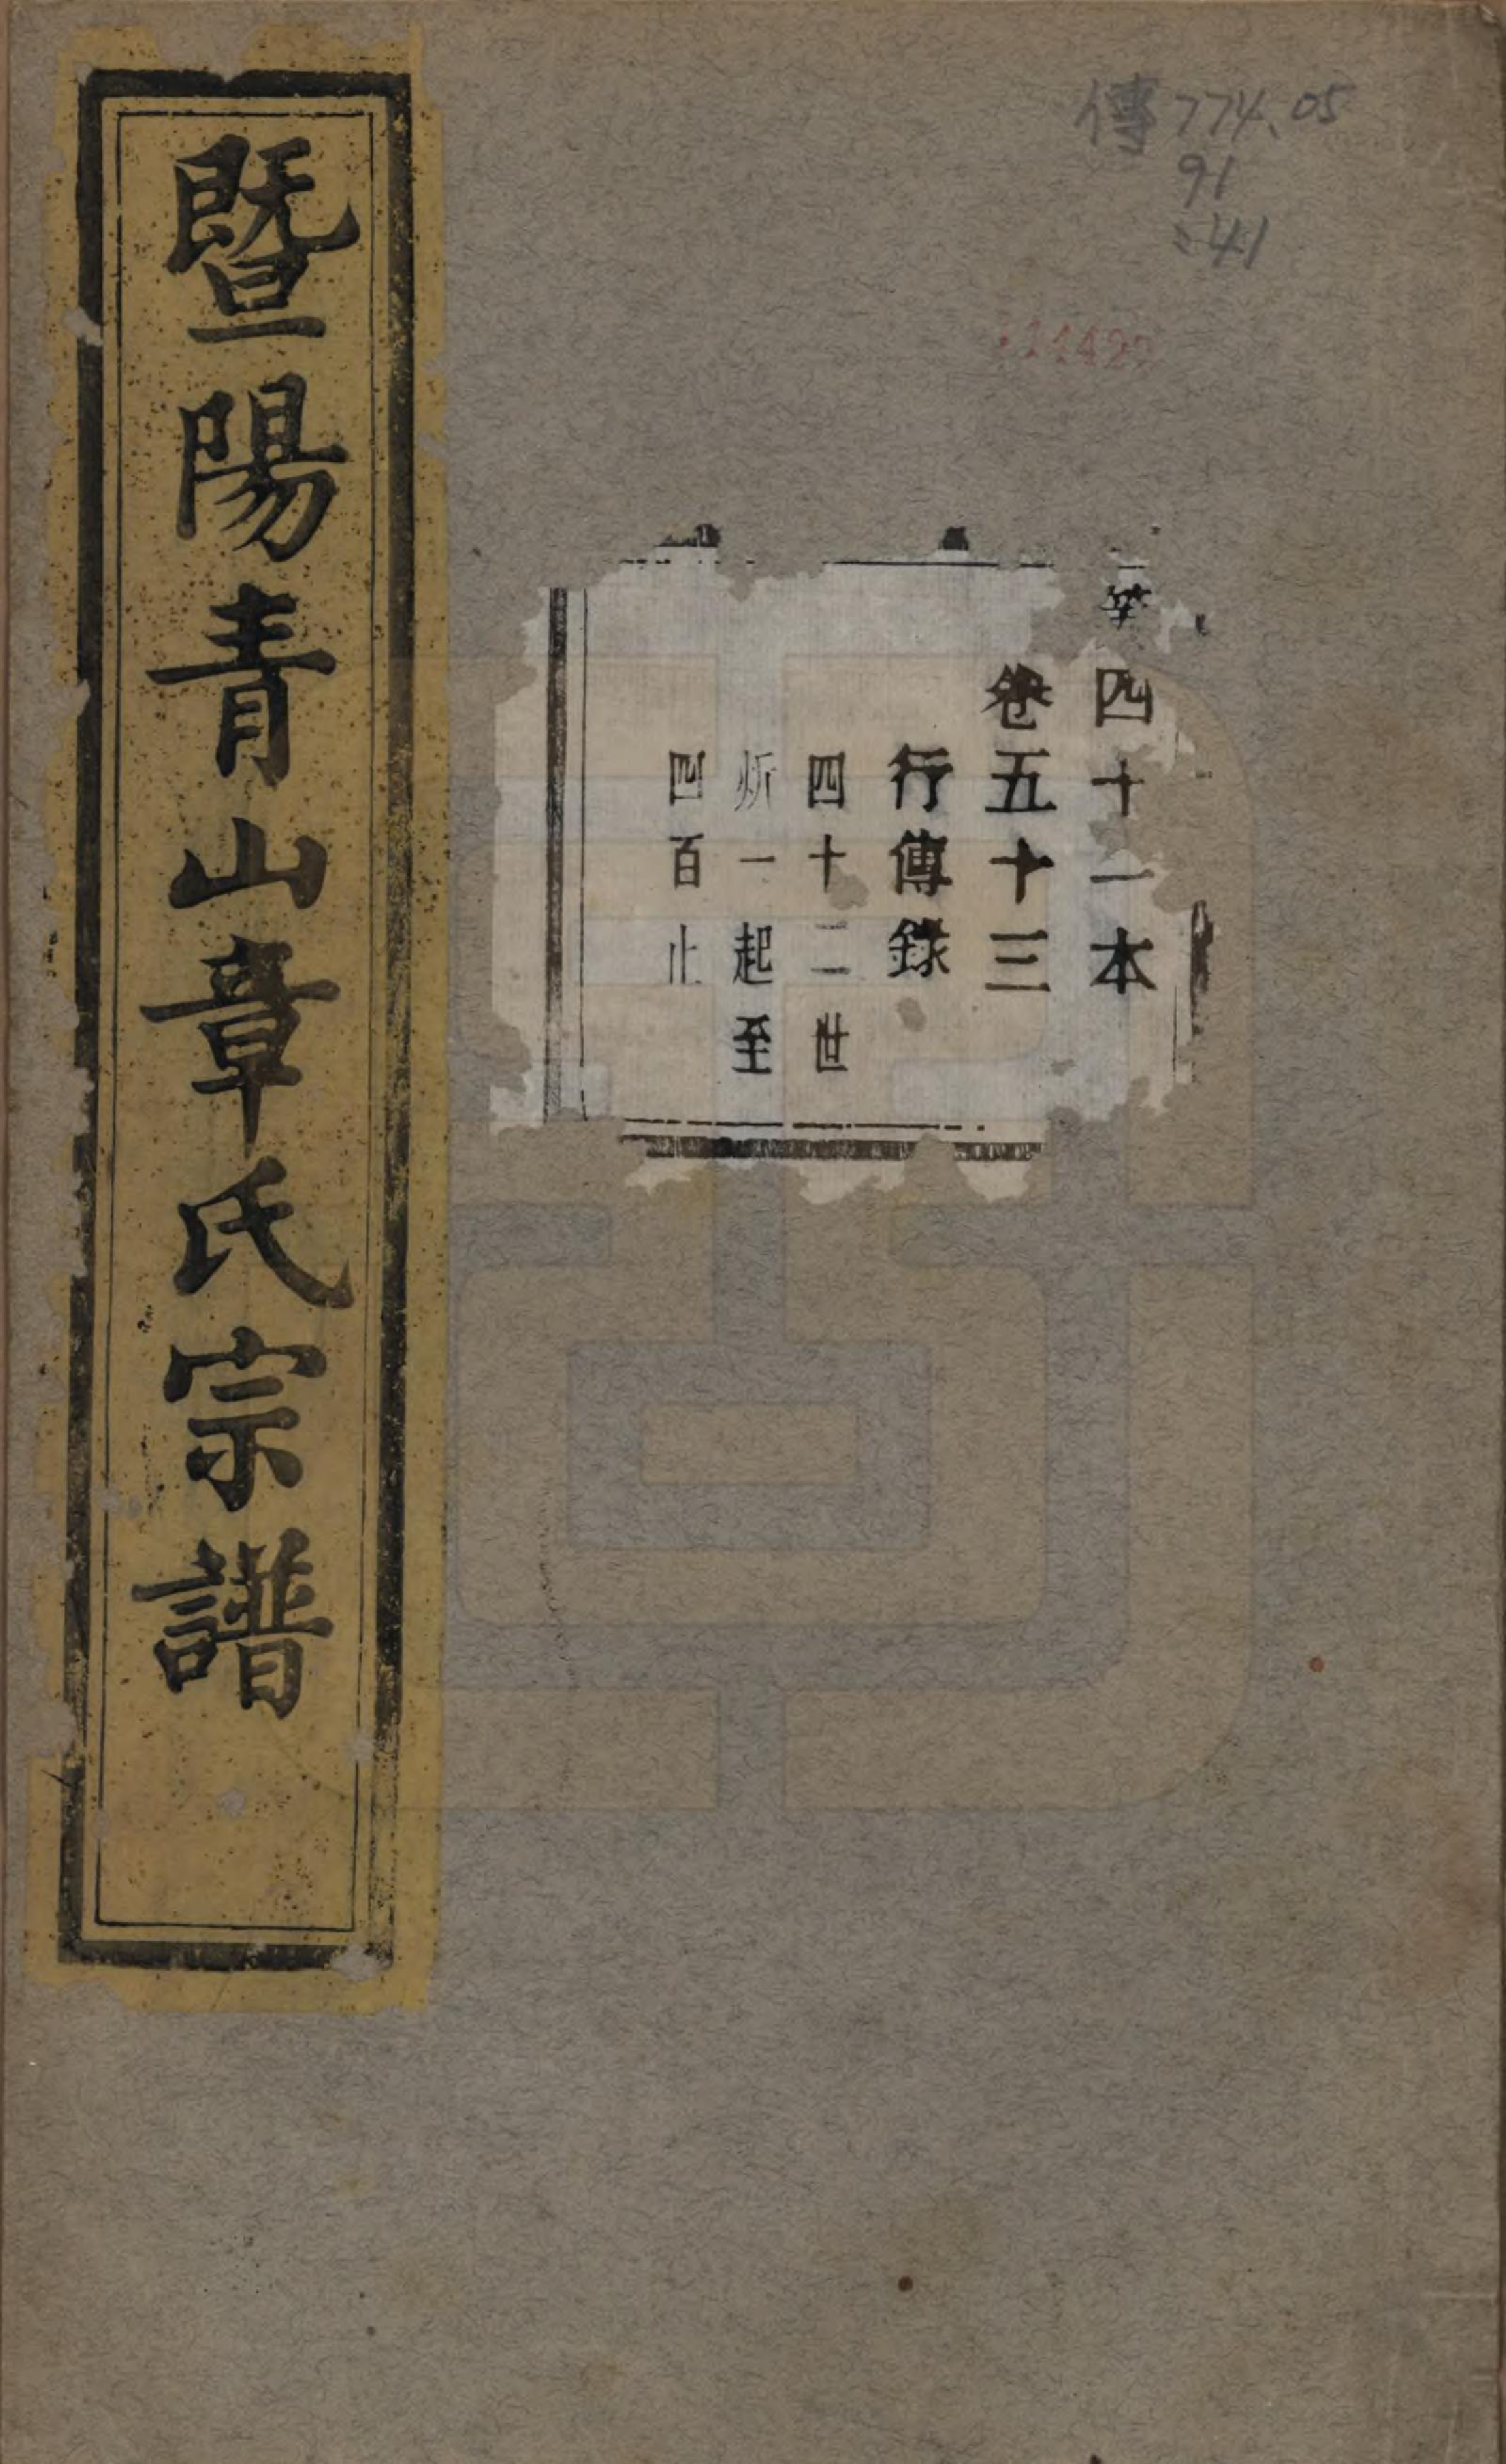 傳774.05
91
:41
第四十一本
卷五十三
行傳錄
四十二世
炘一起至
四百止
暨陽青山章氏宗譜